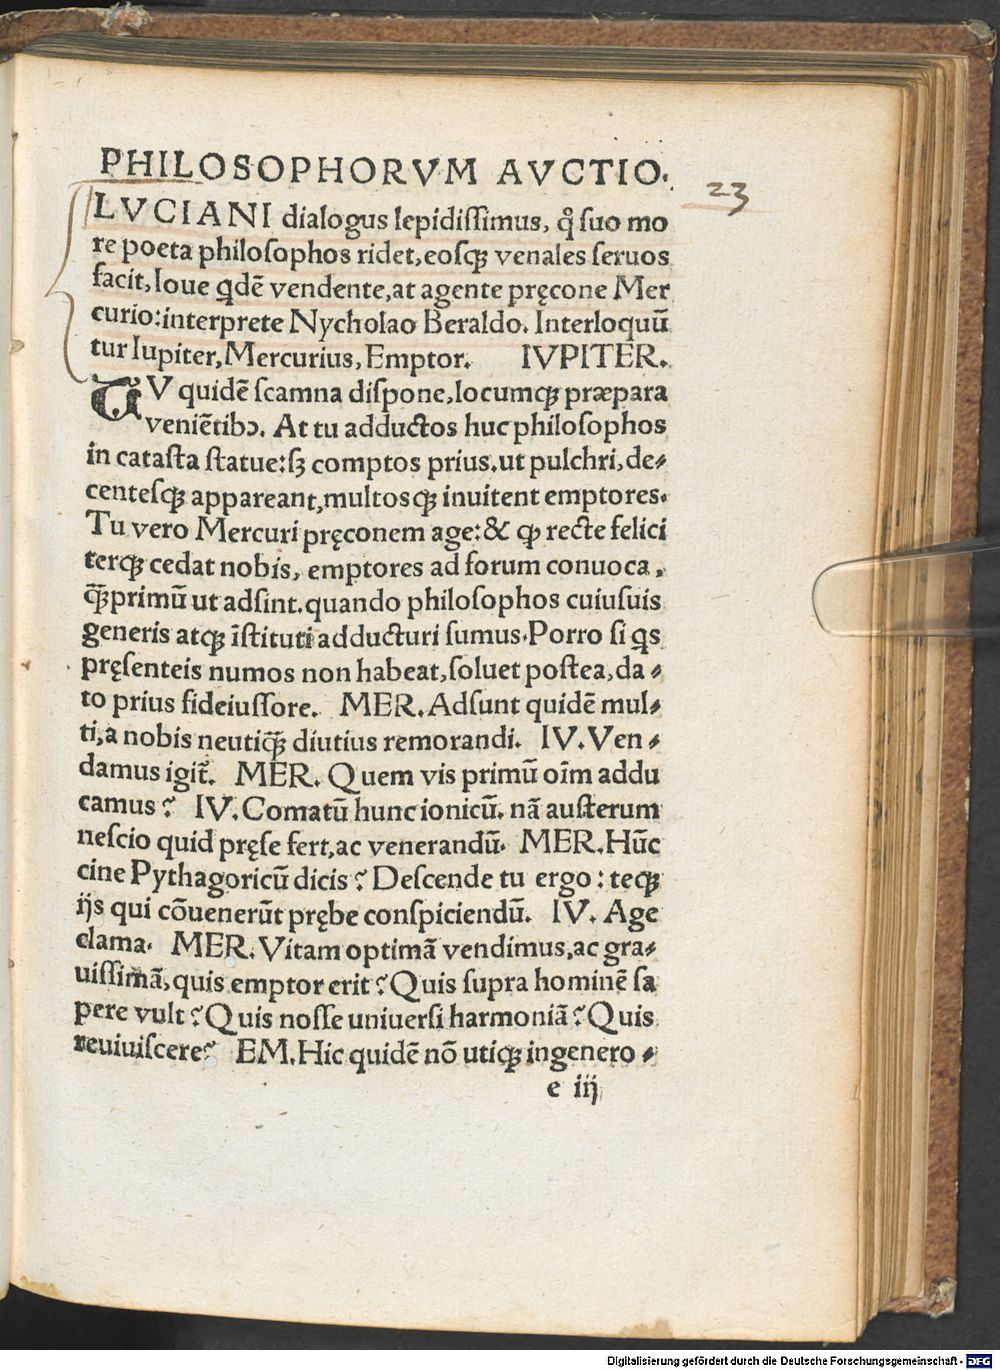 PHILOSOPHORVM AVCTIO.
23
LVCIANI dialogus lepidiſſimus, q̊ ſuo mo
re poeta philoſophos ridet, eoſq; venales ſeruos
facit, Ioue qdē vendente, at agente pręcone Mer
curio: interprete Nycholao Beraldo. Interloquū
tur Iupiter, Mercurius, Emptor. IVPITER.
TV quidē ſcamna diſpone, locumq; præpara
veniētibꝰ. At tu adductos huc philoſophos
in cataſta ſtatue: ſꝫ comptos prius, ut pulchri, de⸗
centeſq; appareant, multoſq; inuitent emptores.
Tu vero Mercuri pręconem age: & ꝙ recte felici
terq; cedat nobis, emptores ad forum conuoca,
q̄primū ut adſint. quando philoſophos cuiuſuis
generis atq; īſtituti adducturi ſumus. Porro ſi qs
pręſenteis numos non habeat, ſoluet poſtea, da⸗
to prius fideiuſſore. MER. Adſunt quidē mul⸗
ti, a nobis neutiq̄ diutius remorandi. IV. Ven⸗
damus igit̃. MER. Quem vis primū oīm addu
camus? IV. Comatū hunc ionicū. nā auſterum
neſcio quid pręſe fert, ac venerandū. MER. Hūc
cine Pythagoricū dicis? Deſcende tu ergo: teq;
ijs qui cōuenerūt prębe conſpiciendū. IV. Age
clama. MER. Vitam optimā vendimus, ac gra⸗
uiſſimā, quis emptor erit? Quis ſupra hominē ſa
pere vult? Quis noſſe uniuerſi harmoniā? Quis
reuiuiſcere? EM. Hic quidē nō utiq; ingenero⸗
e iij
Digitalisierung gefördert durch die Deutsche Forschungsgemeinschaft - DFG